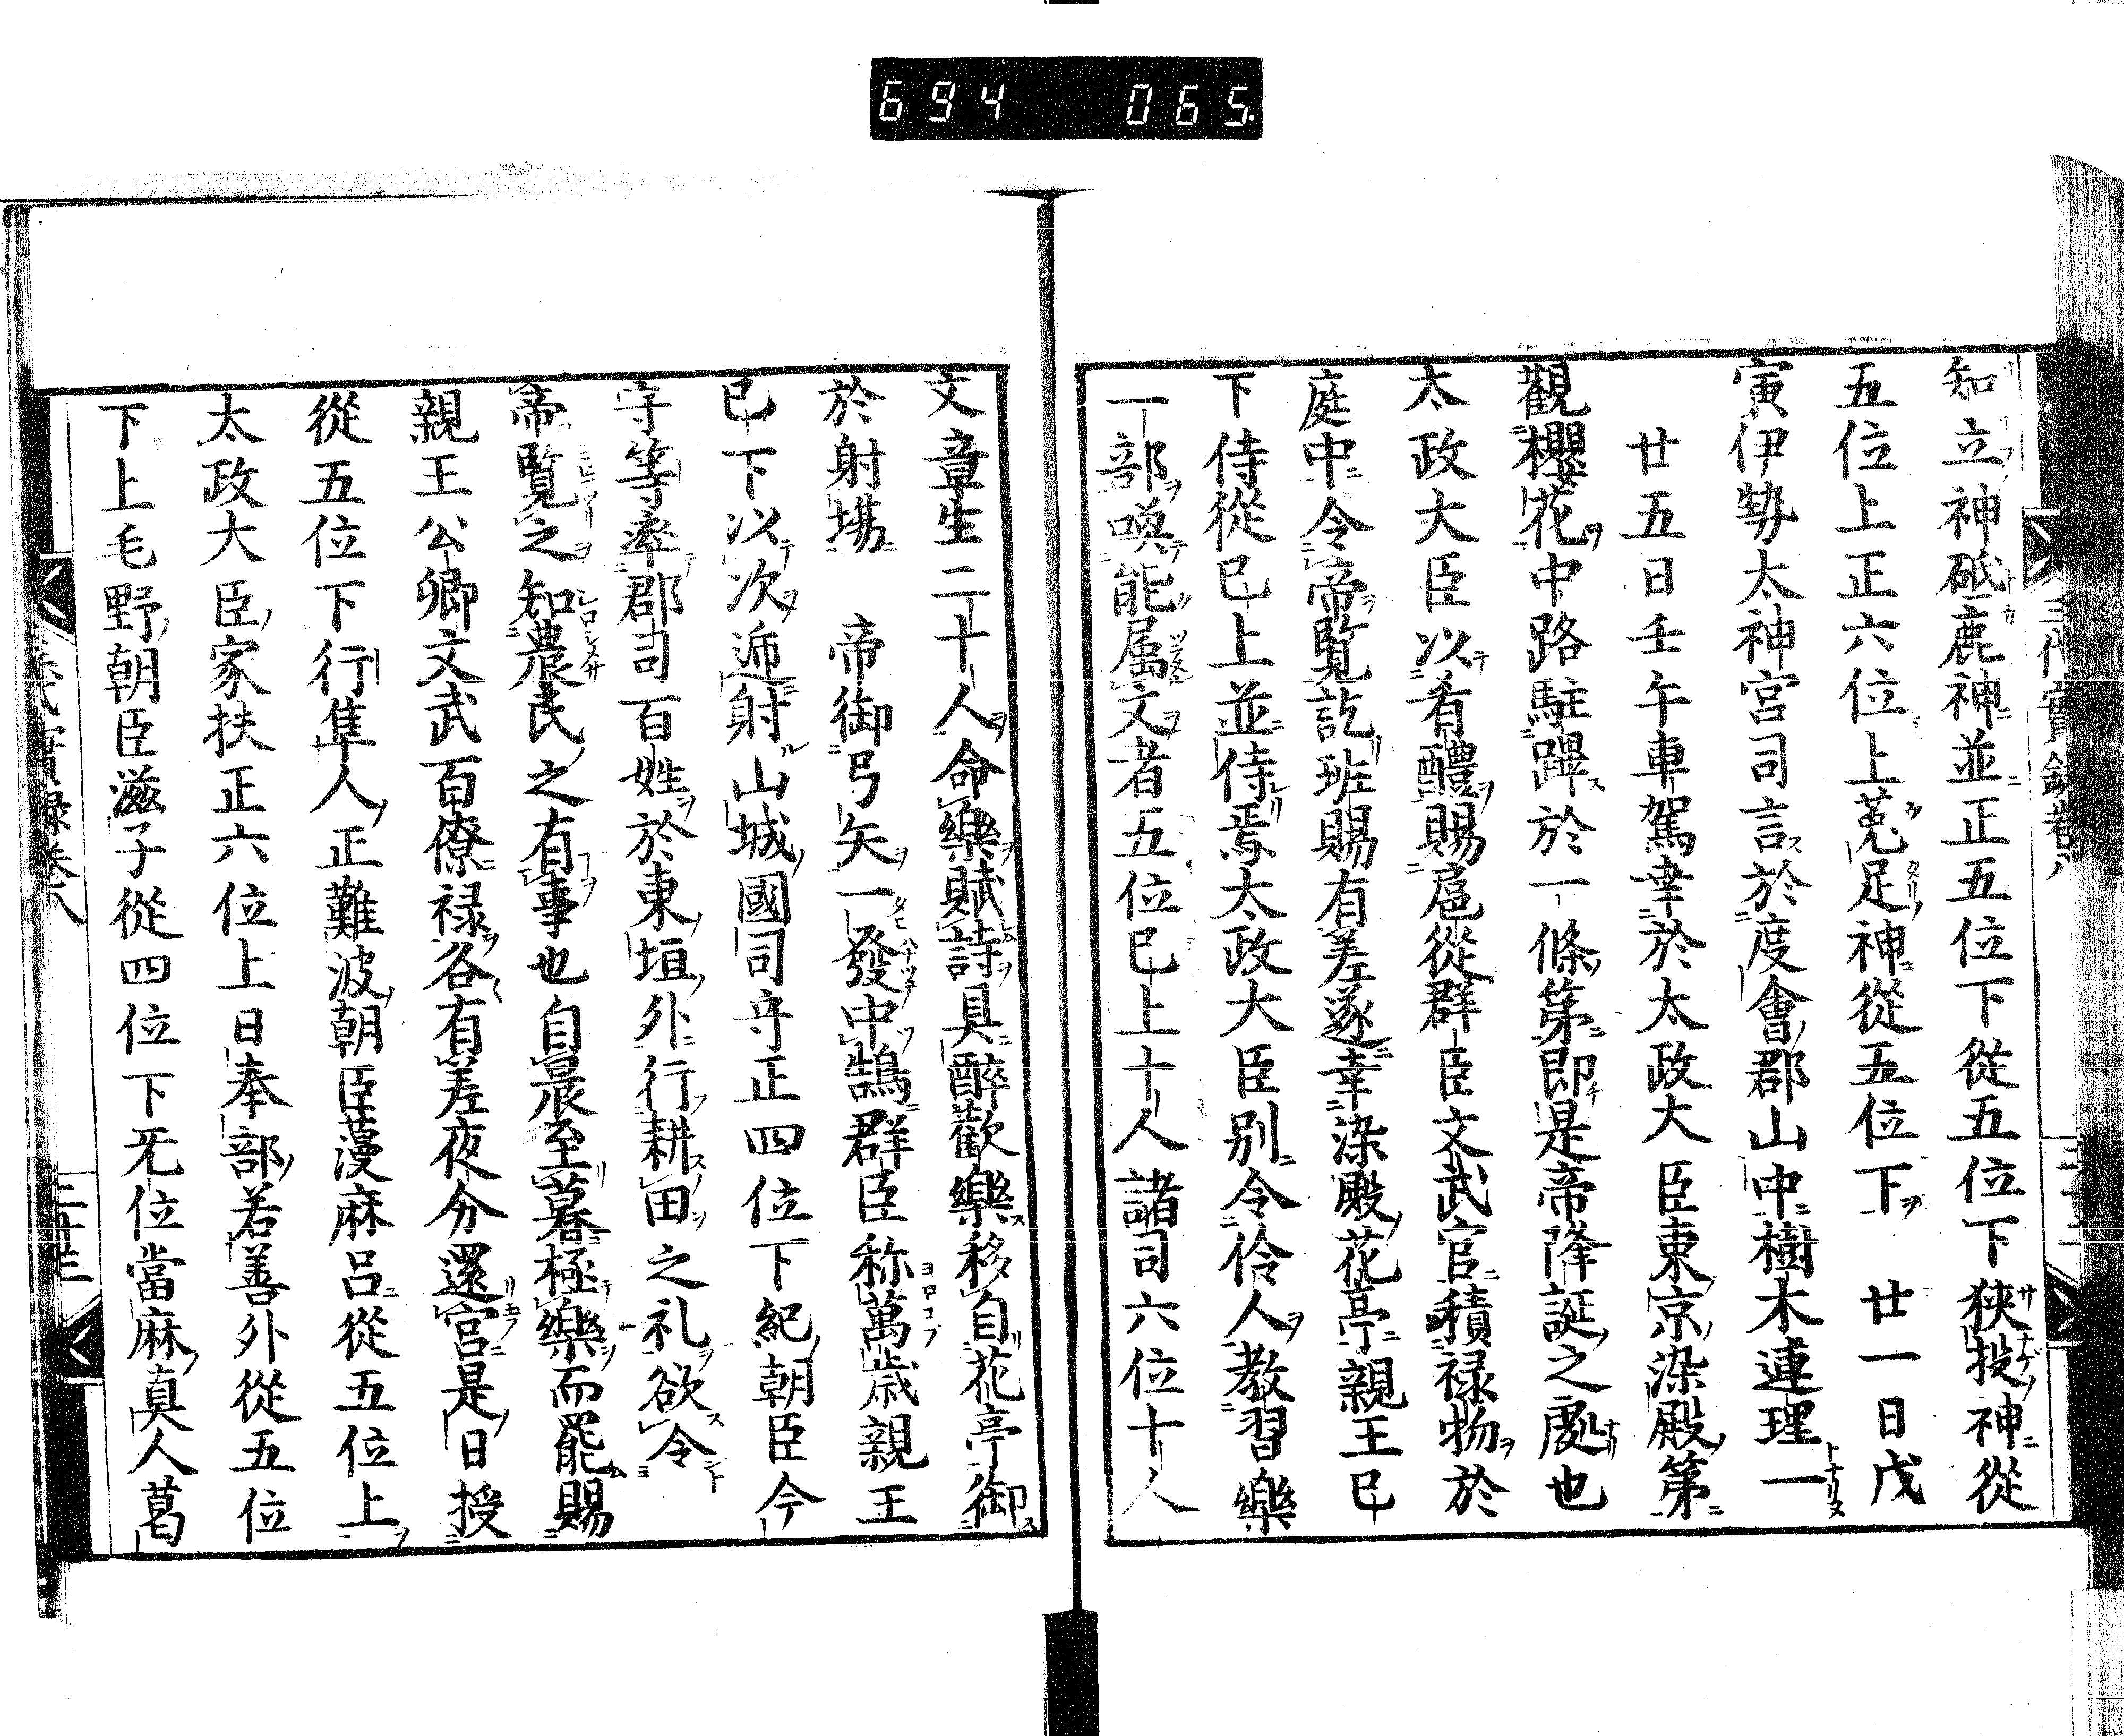 694 065
知立神砥鹿神並正五位下從五位下狹投神從
五位上正六位上菟足神從五位下 廿一日戊
寅伊勢太神宮司言於度會郡山中樹木連理一
廿五日壬午車駕幸於太政大臣東京染殿第
觀櫻花中路駐蹕於一條第即是帝降誕之處也
太政大臣以肴醴賜扈從群臣文武官積禄物於
庭中令帝覧訖班賜有差遂幸染殿花亭親王已
下侍從已上並侍焉太政大臣別令伶人教習樂
一部喚能属文者五位已上十人諸司六位十人
文章生二十人命樂賦詩具醉歡樂移自花亭御
於射場 帝御弓矢一發中鵠群臣称萬歳親王
已下以次遞射山城國司守正四位下紀朝臣今
守等率郡司百姓於東垣外行耕田之礼欲令
帝覧之知農民之有事也自晨至暮極樂而罷賜
親王公卿文武百僚禄各有差夜分還宮是日授
從五位下行隼人正難波朝臣蘰麻呂從五位上
太政大臣家扶正六位上日奉部若善外從五位
下上毛野朝臣滋子從四位下无位當麻真人葛
三代實録巻八